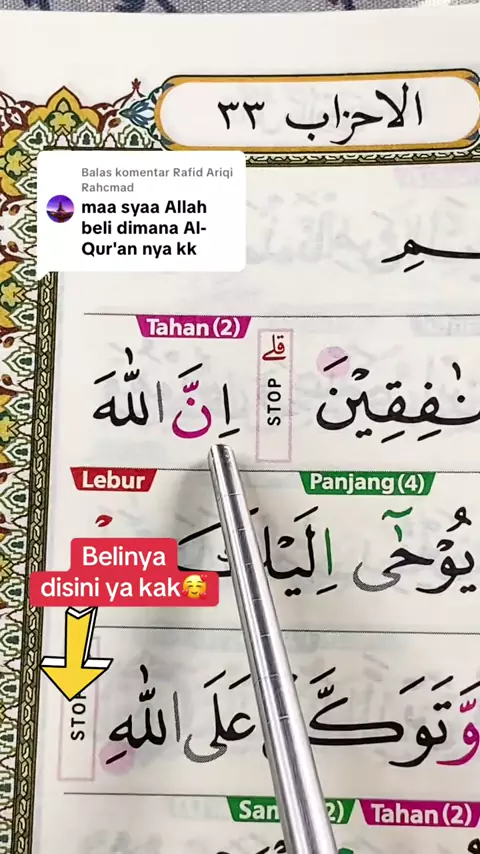 الاحزاب ٣٣
Balas komentar Rafid Ariqi
Rahcmad
maa syaa Allah
beli dimana Al-
Qur'an nya kk
Tahan (2)
قلے
STOP
اِنَّ اللّٰهَ
Lebur
Panjang (4)
يُوْحٰٓى اِلَيْكَ
Belinya
disini ya kak🥰
STOP
وَّتَوَكَّلْ عَلَى اللّٰهِ
Tahan (2)